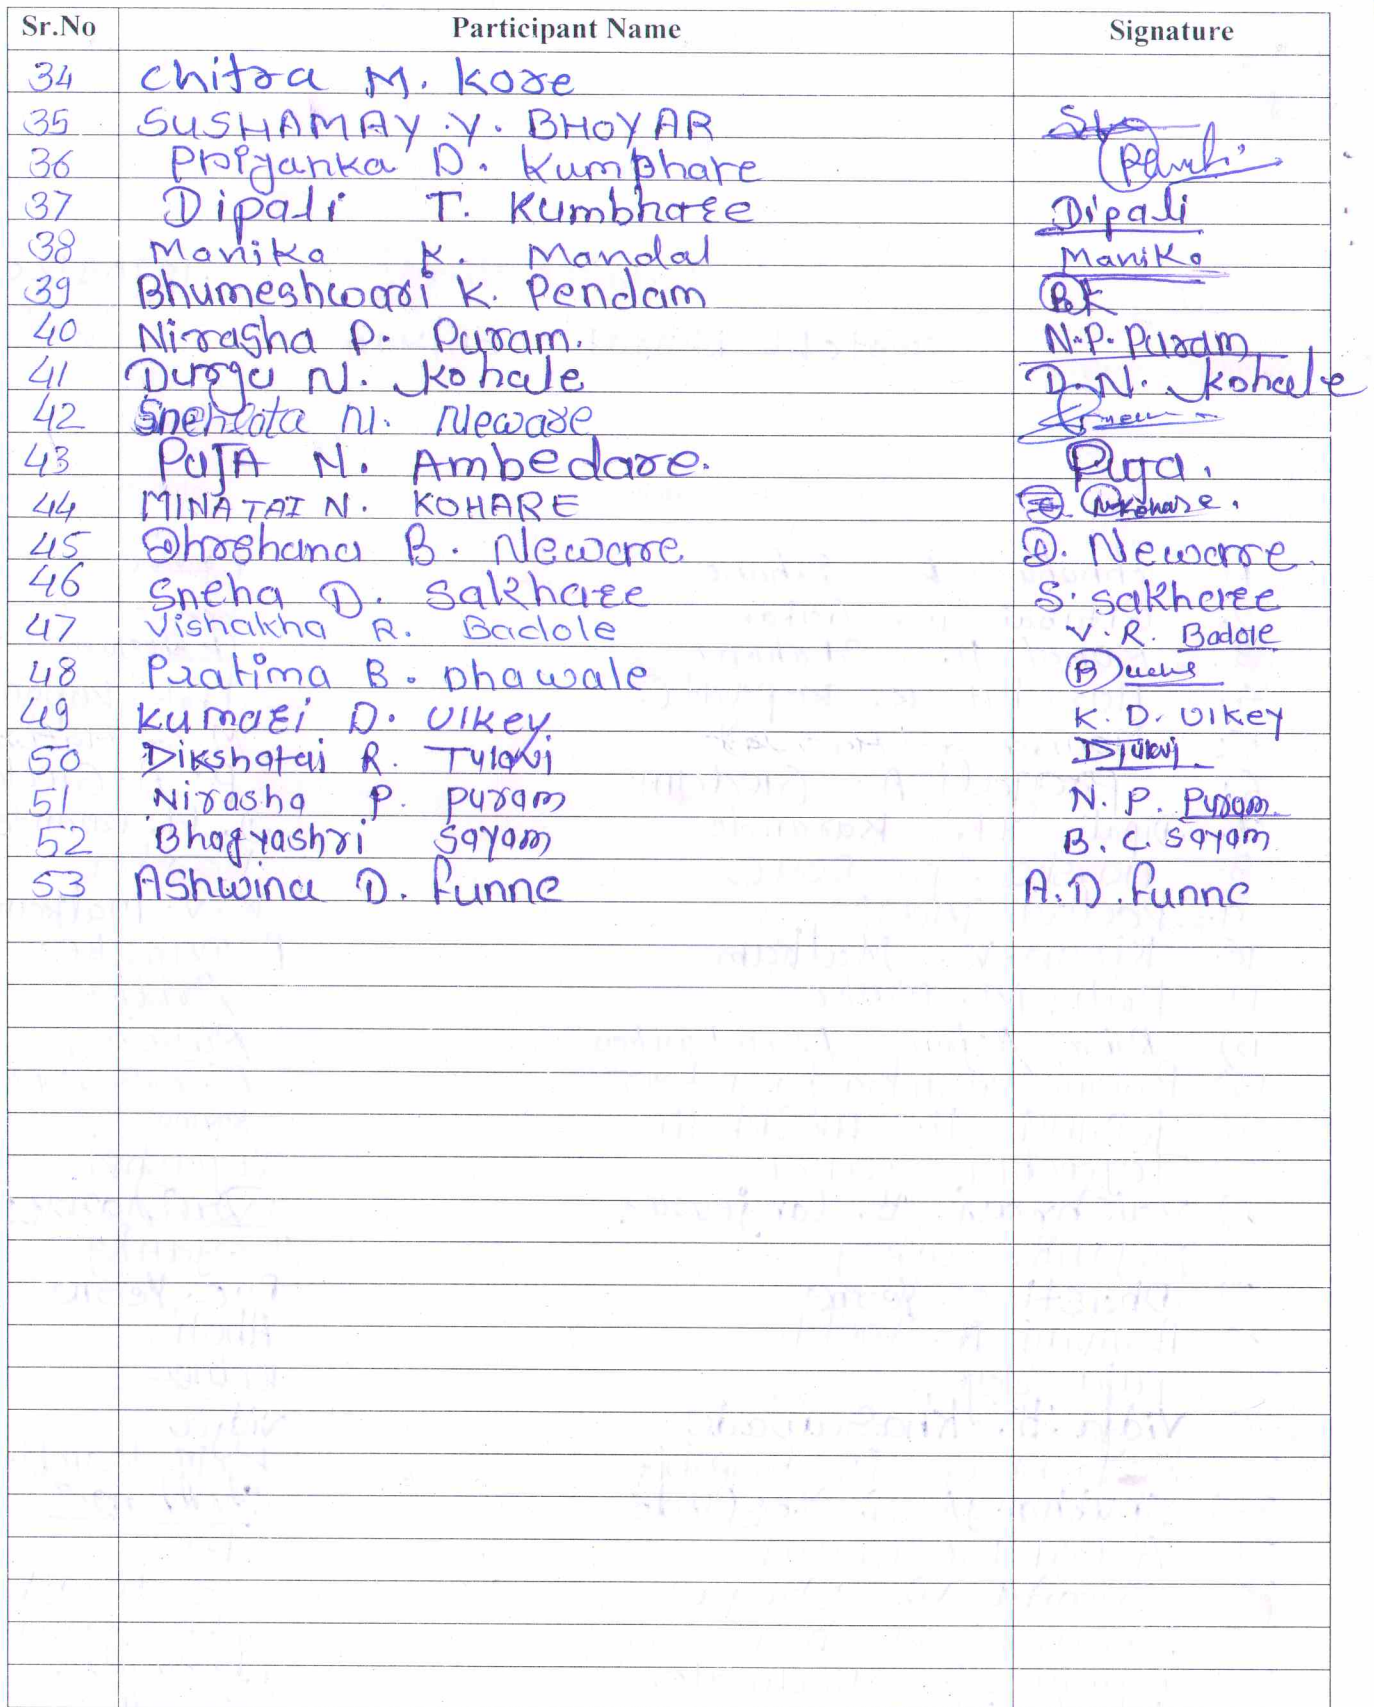 Sr.No Participant Name Signature
34 Chitra M. Kore
35 SUSHAMAY .Y. BHOYAR
36 Priyanka D. Kumphare
37 Dipali T. Kumbhare Dipali
38 Monika K. Mandal Manika
39 Bhumeshwari K. Pendam BK
40 Nirasha P. Puram. N.P. Puram
41 Durga N. Kohale D. N. Kohale
42 Snehlata N. Neware
43 PUJA N. Ambedare. Puja.
44 MINATAI N. KOHARE NKohare.
45 Dharshana B. Neware D. Neware
46 Sneha D. Sakhare S. Sakhare
47 Vishakha R. Badole V. R. Badole
48 Pratima B. Dhawale
49 Kumari D. Uikey. K. D. Uikey
50 Dikshatai R. Tulavi DTulavi
51 Nirasha P. Puram N. P. Puram
52 Bhagyashri Sayam B. C. Sayam
53 AShwina D. funne A.D. funne